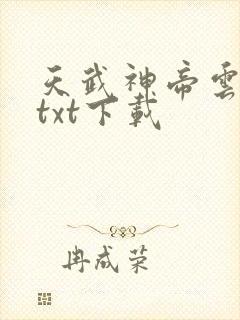 天武神帝雲
txt下載
冉成荣